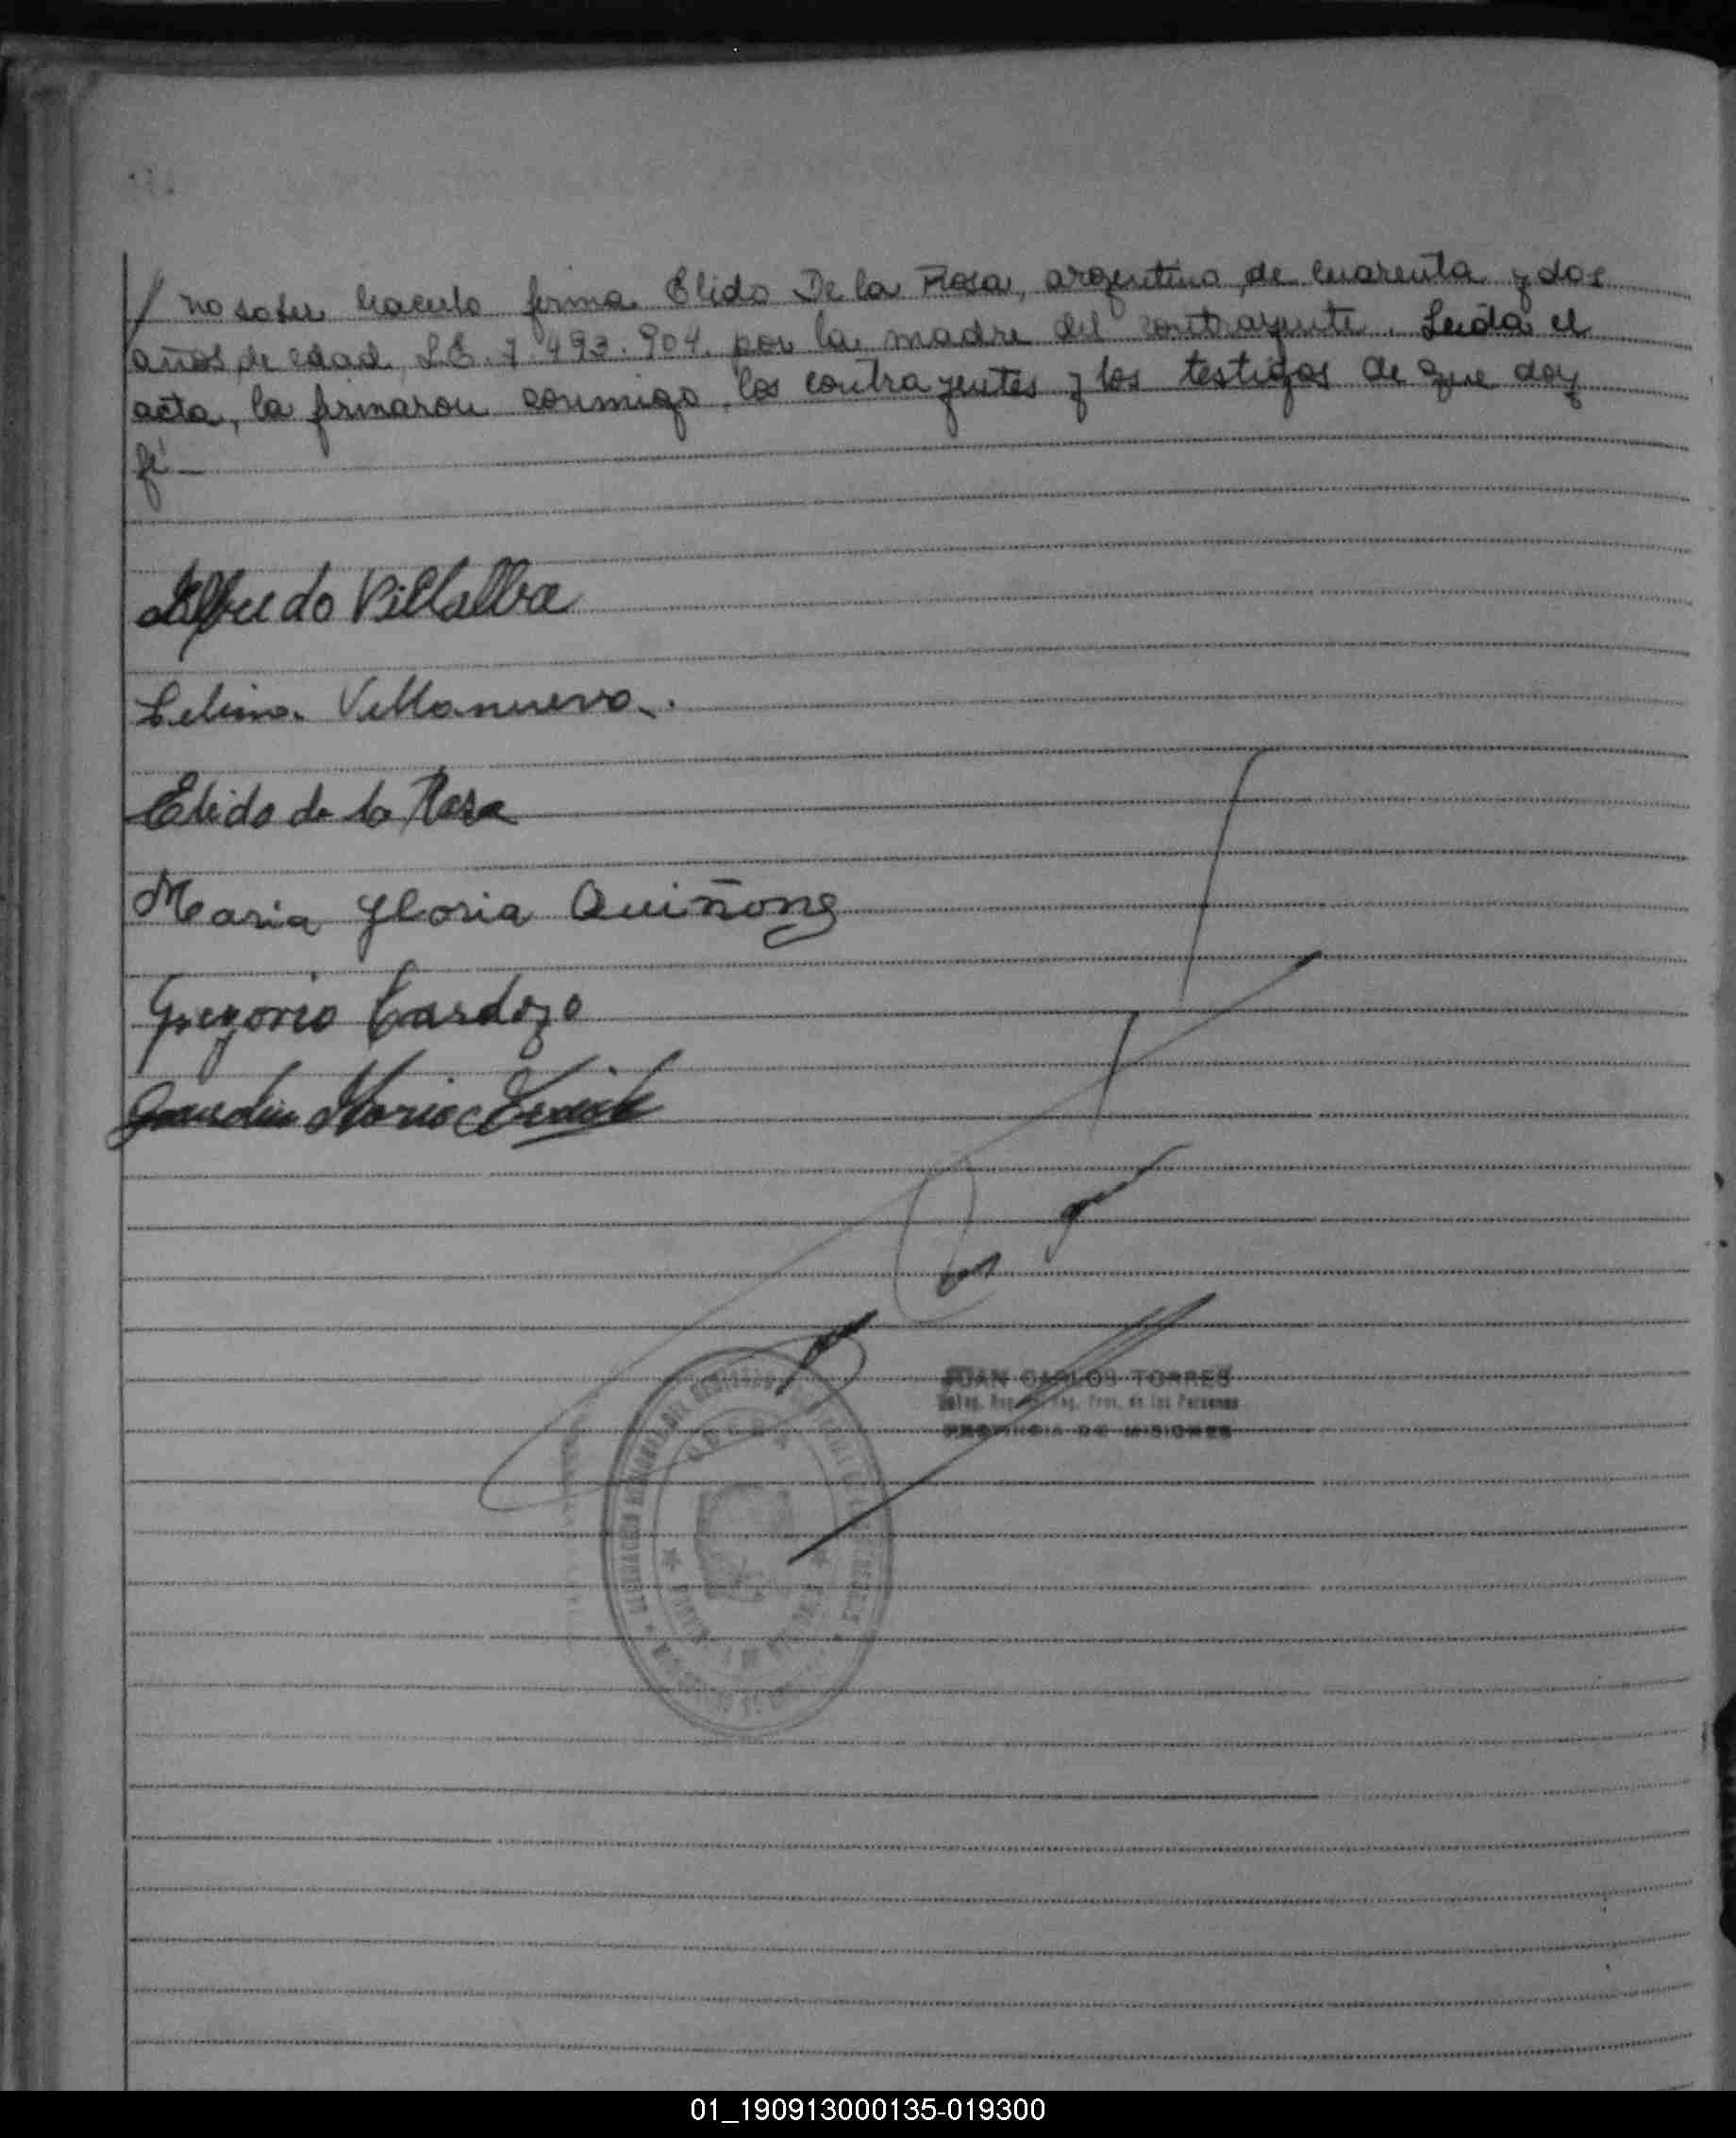 / no saber hacerlo firma Elido De la Rosa, argentino, de cuarenta y dos
años de edad, L.E. 7.493.904. por la madre del contrayente. Leida el
acta, la firmaron conmigo, los contrayentes y los testigos de que doy
fé.—
Alfredo Villalba
Celina Villanueva.
Elido de la Rosa
Maria Gloria Quiñones
Gregorio Cardozo
JUAN CARLOS TORRES
Reg. Prov. de las Personas
PROVINCIA DE MISIONES
01_190913000135-019300